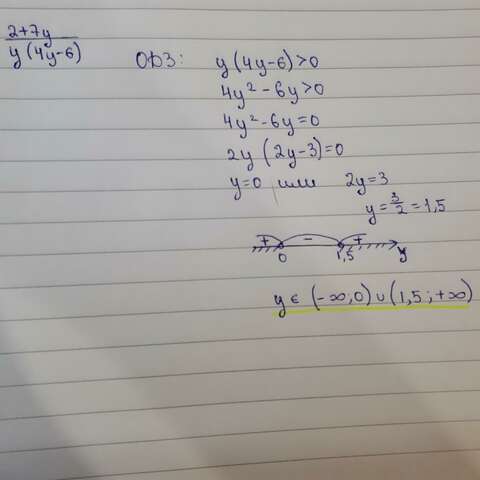 2+7y
y(4y-6)
ОДЗ: y(4y-6)>0
4y²-6y>0
4y²-6y=0
2y(2y-3)=0
y=0 или 2y=3
y=3/2=1,5
+ - +
0 1,5 y
y∈(-∞,0)∪(1,5;+∞)